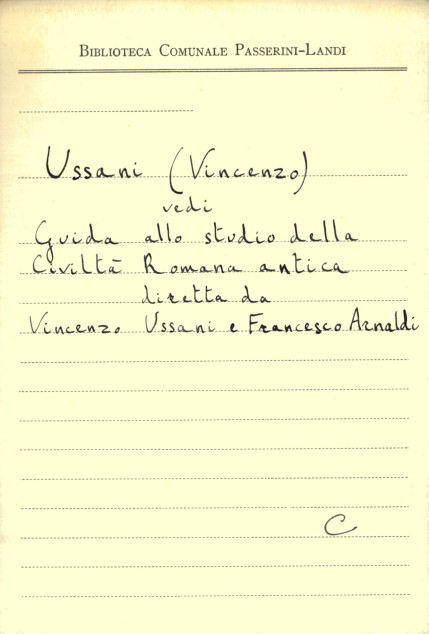 Biblioteca Comunale Passerini-Landi
Ussani (Vincenzo)
vedi
Guida allo studio della
Civiltà Romana antica
diretta da
Vincenzo Ussani e Francesco Arnaldi
C